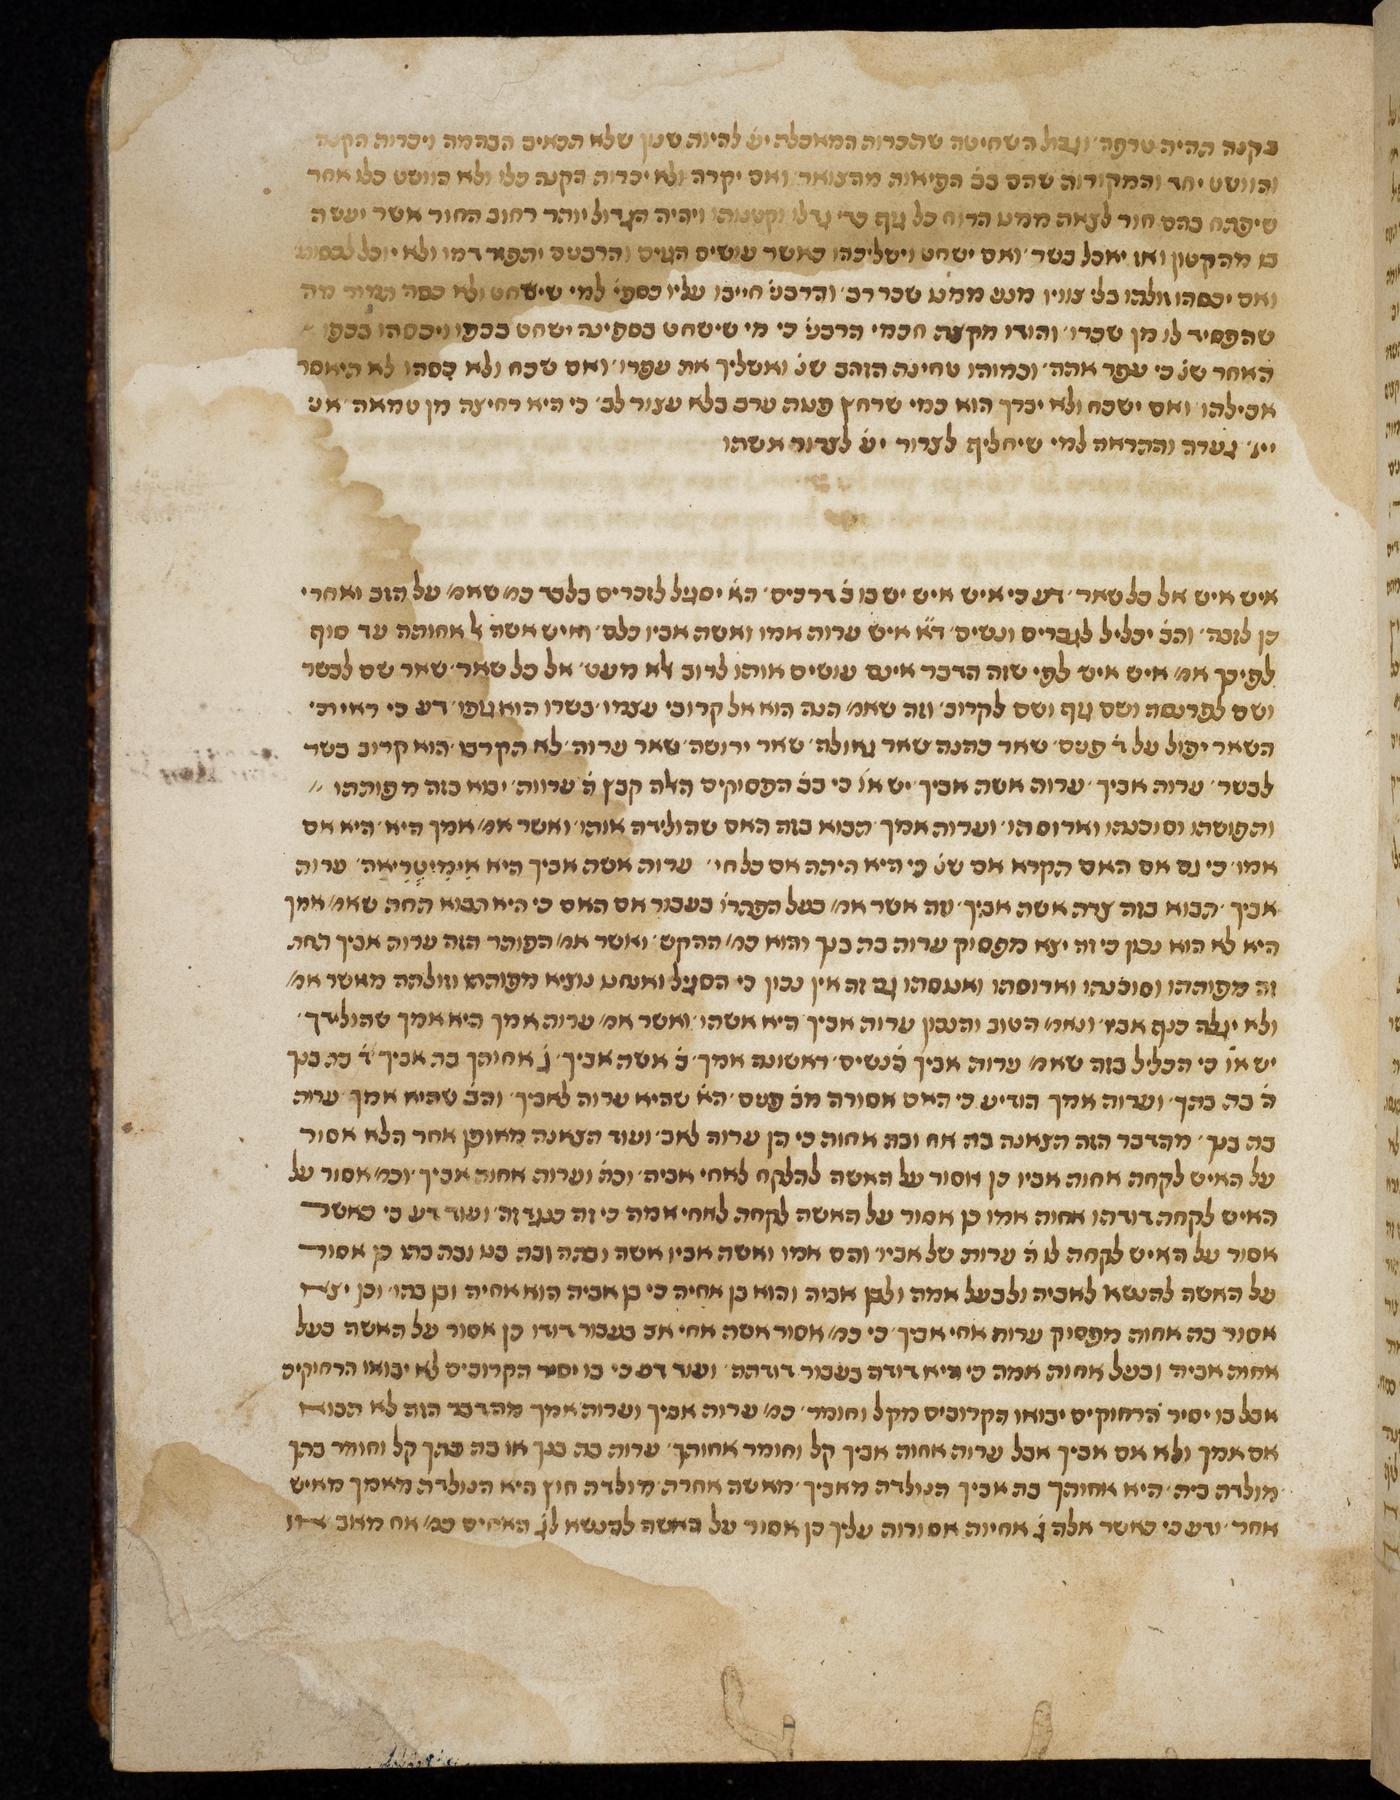 בקנה תהיה טרפה׳ וגבול השחיטה שתכרות המאכלה יע׳ להיות שנון שלא תכאיב הבהמה ויכרות הקנה
והוושט יחד והמקורות שהם בב׳ הפיאות מהצואר׳ ואם יקרה ולא יכרות הקנה כלו ולא הוושט כלו אחר
שיפתח בהם חור לצאת ממנו הרוח כל גוף כפי גדלו וקטנותו ויהיה הגדול יותר רחוב החור אשר יעשה
בו מהקטון ואז יאכל בשר׳ ואם ישחט וישליכהו כאשר עושים הגוים והרבנים יתפזר דמו ולא יוכל לכסותו
ואם יכסהו זולתו בלי צוויו מנע ממנו שכר רב׳ והרבנ׳ חייבו עליו כסף׳ למי שישחט ולא כסה תמור מה
שהפסיד לו מן שכרו׳ והודו מקצת חכמי הרבנ׳ כי מי שישחט בספינה ישחט בכפו ויכסהו בכפו
האחר שנ׳ כי עפר אתה׳ וכמוהו טחינת הזהב שנ׳ ואשליך את עפרו׳ ואם שכח ולא כסהו לא היאסר
אכילתו׳ ואם ישכח ולא יברך הוא כמי שרחץ פעת ערב בלא עצור לב׳ כי היא רחיצה מן טמאה׳ אע׳
ייג׳ נערה וההראה למי שיחליף לצרור יע׳ לצרור אשתו
איש איש אל כל שאר׳ דע כי איש איש יש בו ב׳ דרכים׳ הא׳ יסגל לזכרים בלבד כמ׳ שאמ׳ על הזב ואחרי
כן לזבה׳ והב׳ יכליל לגברים ונשים׳ ד״א איש ערות אמו ואשת אביו כלם׳ ואיש אשה אל אחותה עד סוף
לפיכך אמ׳ איש איש לפי שזה הדבר אינם עושים אותו לרוב לא מעט׳ אל כל שאר׳ שאר שם לבשר
ושם לפרנסה ושם גוף ושם לקרוב׳ וזה שאמ׳ הנה הוא אל קרובי עצמו׳ בשרו הוא גופו׳ דע כי ראיתי
השאר יפול על ד׳ פנים׳ שאר כהנה שאר גאולה׳ שאר ירושה׳ שאר ערוה׳ לא תקרבו׳ הוא קרוב בשר
לבשר׳ ערות אביך׳ ערות אשת אביך׳ יש או׳ כי בב׳ הפסוקים האלה קבץ ה׳ ערוות׳ יבוא בזה מפותתו
ותפושתו וסוכנתו וארוסתו׳ וערות אמך תבוא בזה האם שהולידה אותו׳ ואשר אמ׳ אמך היא׳ היא אם
אמו׳ כי גם אם האם תקרא אם שנ׳ כי היא היתה אם כל חי׳ ערות אשת אביך היא אִימִיטְרִיאָה׳ ערות
אביך׳ תבוא בזה צרת אשת אביך׳ וזה אשר אמ׳ בעל הפתרו׳ בעבור אם האם כי היא תבוא תחת שאמ׳ אמך
היא לא הוא נכון כי זה יצא מפסוק ערות בת בנך והוא כמ׳ ההקש׳ ואשר אמ׳ הפותר הזה ערות אביך תחת
זה מפותתו וסוכנתו וארוסתו ואנוסתו גם זה אין נכון כי הסגיל ואנחנו נוציא מפותתו וזולתה מאשר אמ׳
ולא יגלה כנף אביו׳ ונאמ׳ הטוב והנכון ערות אביך היא אשתו׳ ואשר אמ׳ ערות אמך היא אמך שהולידך׳
יש או׳ כי הכליל בזה שאמ׳ ערות אביך ב׳ נשים׳ ראשונה אמך׳ ב׳ אשת אביך׳ ג׳ אחותך בת אביך׳ ד׳ בת בנך
ה׳ בת בתך׳ וערות אמך הודיע כי האם אסורה מב׳ פנים׳ הא׳ שהיא ערוה לאביך׳ והב׳ שהיא אמך׳ ערות
בת בנך׳ מהדבר הזה הצאנה בת אח ובת אחות כי הן ערוה לאב׳ ועוד הצאנה מאופן אחר הלא אסור
על האיש לקחת אחות אביו כן אסור על האשה להלקח לאחי אביה׳ וכה׳ וערות אחות אביך׳ וכמ׳ אסור על
האיש לקחת דודתו אחות אמו כן אסור על האשה לקחת לאחי אמה כי זה כנגד זה׳ ועוד דע כי כאשר
אסור על האיש לקחת לו ה׳ ערות של אביו׳ והם אמו ואשת אביו אשה ובתה ובת בנו ובת בתו כן אסור
על האשה להנשא לאביה ולבעל אמה ולבן אביה והוא בן אחיה כי בן אביה הוא אחיה ובן בתו׳ וכן יצא
אסור בת אחות מפסוק ערות אחי אביך׳ כי כמ׳ אסור אשת אחי אב בעבור דודו כן אסור על האשה בעל
אחות אביה ובעל אחות אמה כי היא דודה בעבור דודתה׳ ועוד דע כי בו יסיר הקרובים לא יבואו הרחוקים
אבל בו יסיר הרחוקים יבואו הקרובים מקל וחומר׳ כמ׳ ערות אביך וערות אמך מהדבר הזה לא תבוא
אם אמך ולא אם אביך אבל ערות אחות אביך קל וחומר אחותך׳ ערות בת בנך או בת בתך קל וחומר בתך
מולדת בית׳ היא אחותך בת אביך הנולדת מאביך׳ מאשה אחרת׳ מולדת חוץ היא הנולדת מאמך מאיש
אחר׳ ודע כי כאשר אלה ג׳ אחיות אסורות עליך כן אסור על האשה להנשא לג׳ האחים כמ׳ אח מאב